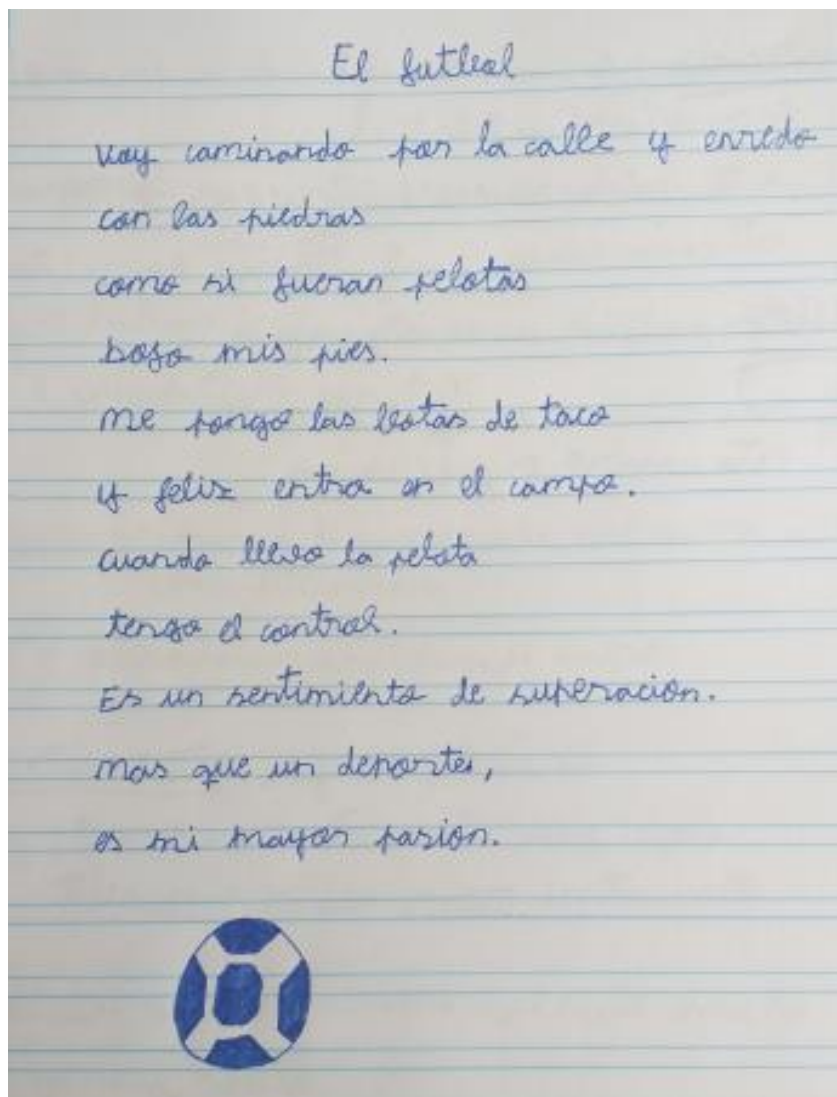 El futbol
voy caminando por la calle y enredo
con las piedras
como si fueran pelotas
bajo mis pies.
me pongo las botas de taco
y feliz entro en el campo.
cuando llevo la pelota
tengo el control.
Es un sentimiento de superación.
mas que un deporte,
es mi mayor pasión.